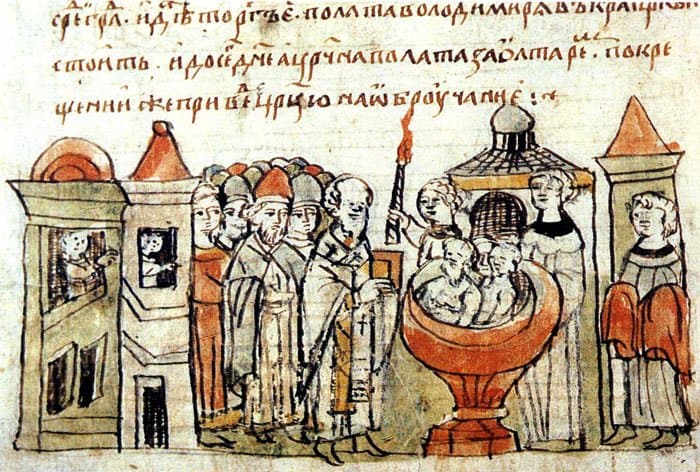 среⷣ граⷣ. идѣ торгъ є. полата володимиря въ краи црк҃ви
стоить. и до сеⷢ҇ дн҃е а цр҃цна полата за олтареⷨ. по кре
щении же привⷷⷣе цр҃цю на ѡброучание :~